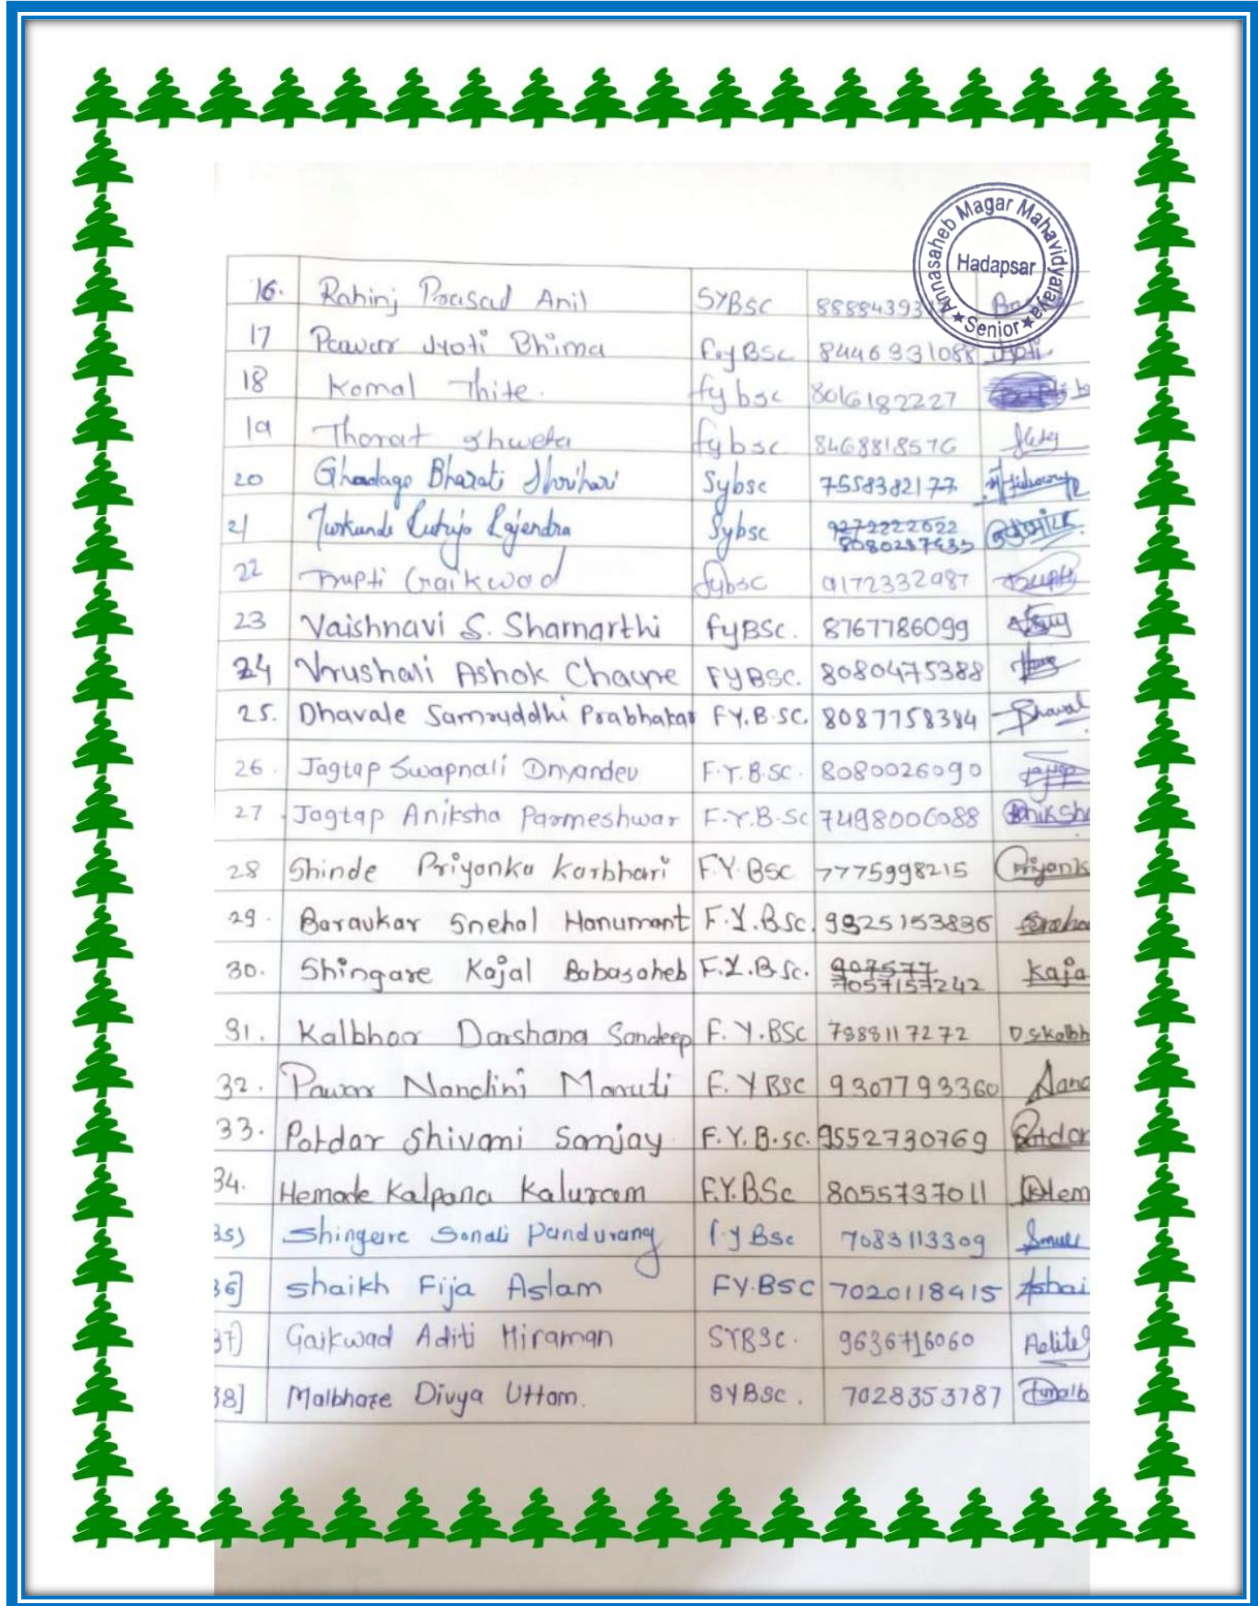 Annasaheb Magar Mahavidyalaya
Hadapsar
★ Senior ★
16. Rahinj Prasad Anil SYBSC
17 Pawar Jyoti Bhima F.y BSC 8446331088 Jyoti
18 Komal Thite. fybsc 8016182227
19 Thorat Shweta fybsc 8468818576
20 Ghadage Bharati Shrihari Sybsc 7558382177
21 Rajendra Sybsc 9272222622
22 Trupti Gaikwad fybsc 9172332987 Trupti
23 Vaishnavi S. Shamarthi FyBSC. 8767786099
24 Vrushali Ashok Chavre FYBSC. 8080475388
25. Dhavale Samruddhi Prabhakar F.Y.B.SC. 8087758384 Dhaval
26. Jagtap Swapnali Dnyandev F.Y.B.SC. 8080026090
27. Jagtap Aniksha Parmeshwar F.Y.B.SC 7498006088 Aniksha
28 Shinde Priyanka Karbhari F.Y.BSC 7775998215 Priyank
29. Baravkar Snehal Hanumant F.Y.BSc. 9925153836
30. Shingare Kajal Babasaheb F.Y.B.Sc. 907577 Kaja
7057157242
31. Kalbhor Darshana Sandeep F.Y.BSc 7888117272 D.S.Kalbh
32. Pawar Nandini Maruti F.Y BSC 9307793360 Nand
33. Potdar Shivani Sanjay F.Y.B.sc. 9552730769 Potdar
34. Hemade Kalpana Kaluram F.Y.BSc 8055737011 KHem
35) Shingare Sonali Pandurang f.y Bsc 7083113309
36] Shaikh Fija Aslam FY.BSC 7020118415
37) Gaikwad Aditi Hiraman SYBSC. 9636716060
38] Malbhare Divya Uttam. SYBSC. 7028353787